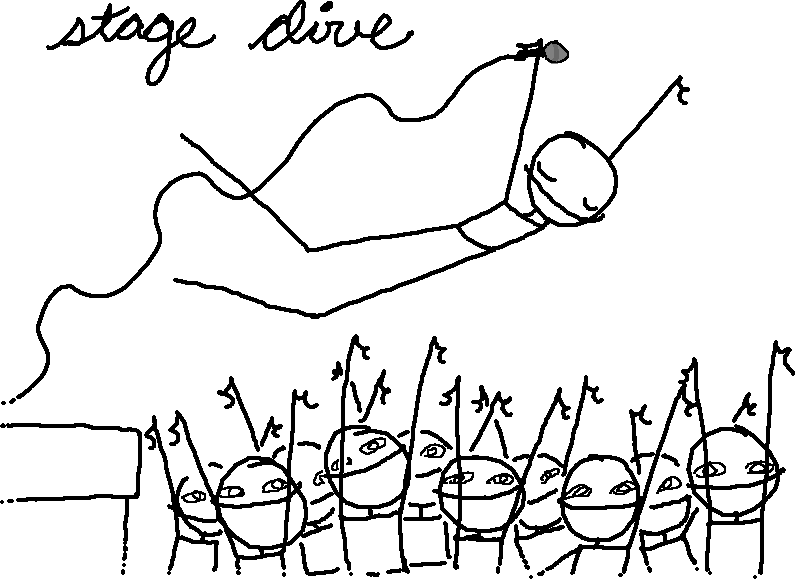 stage dive